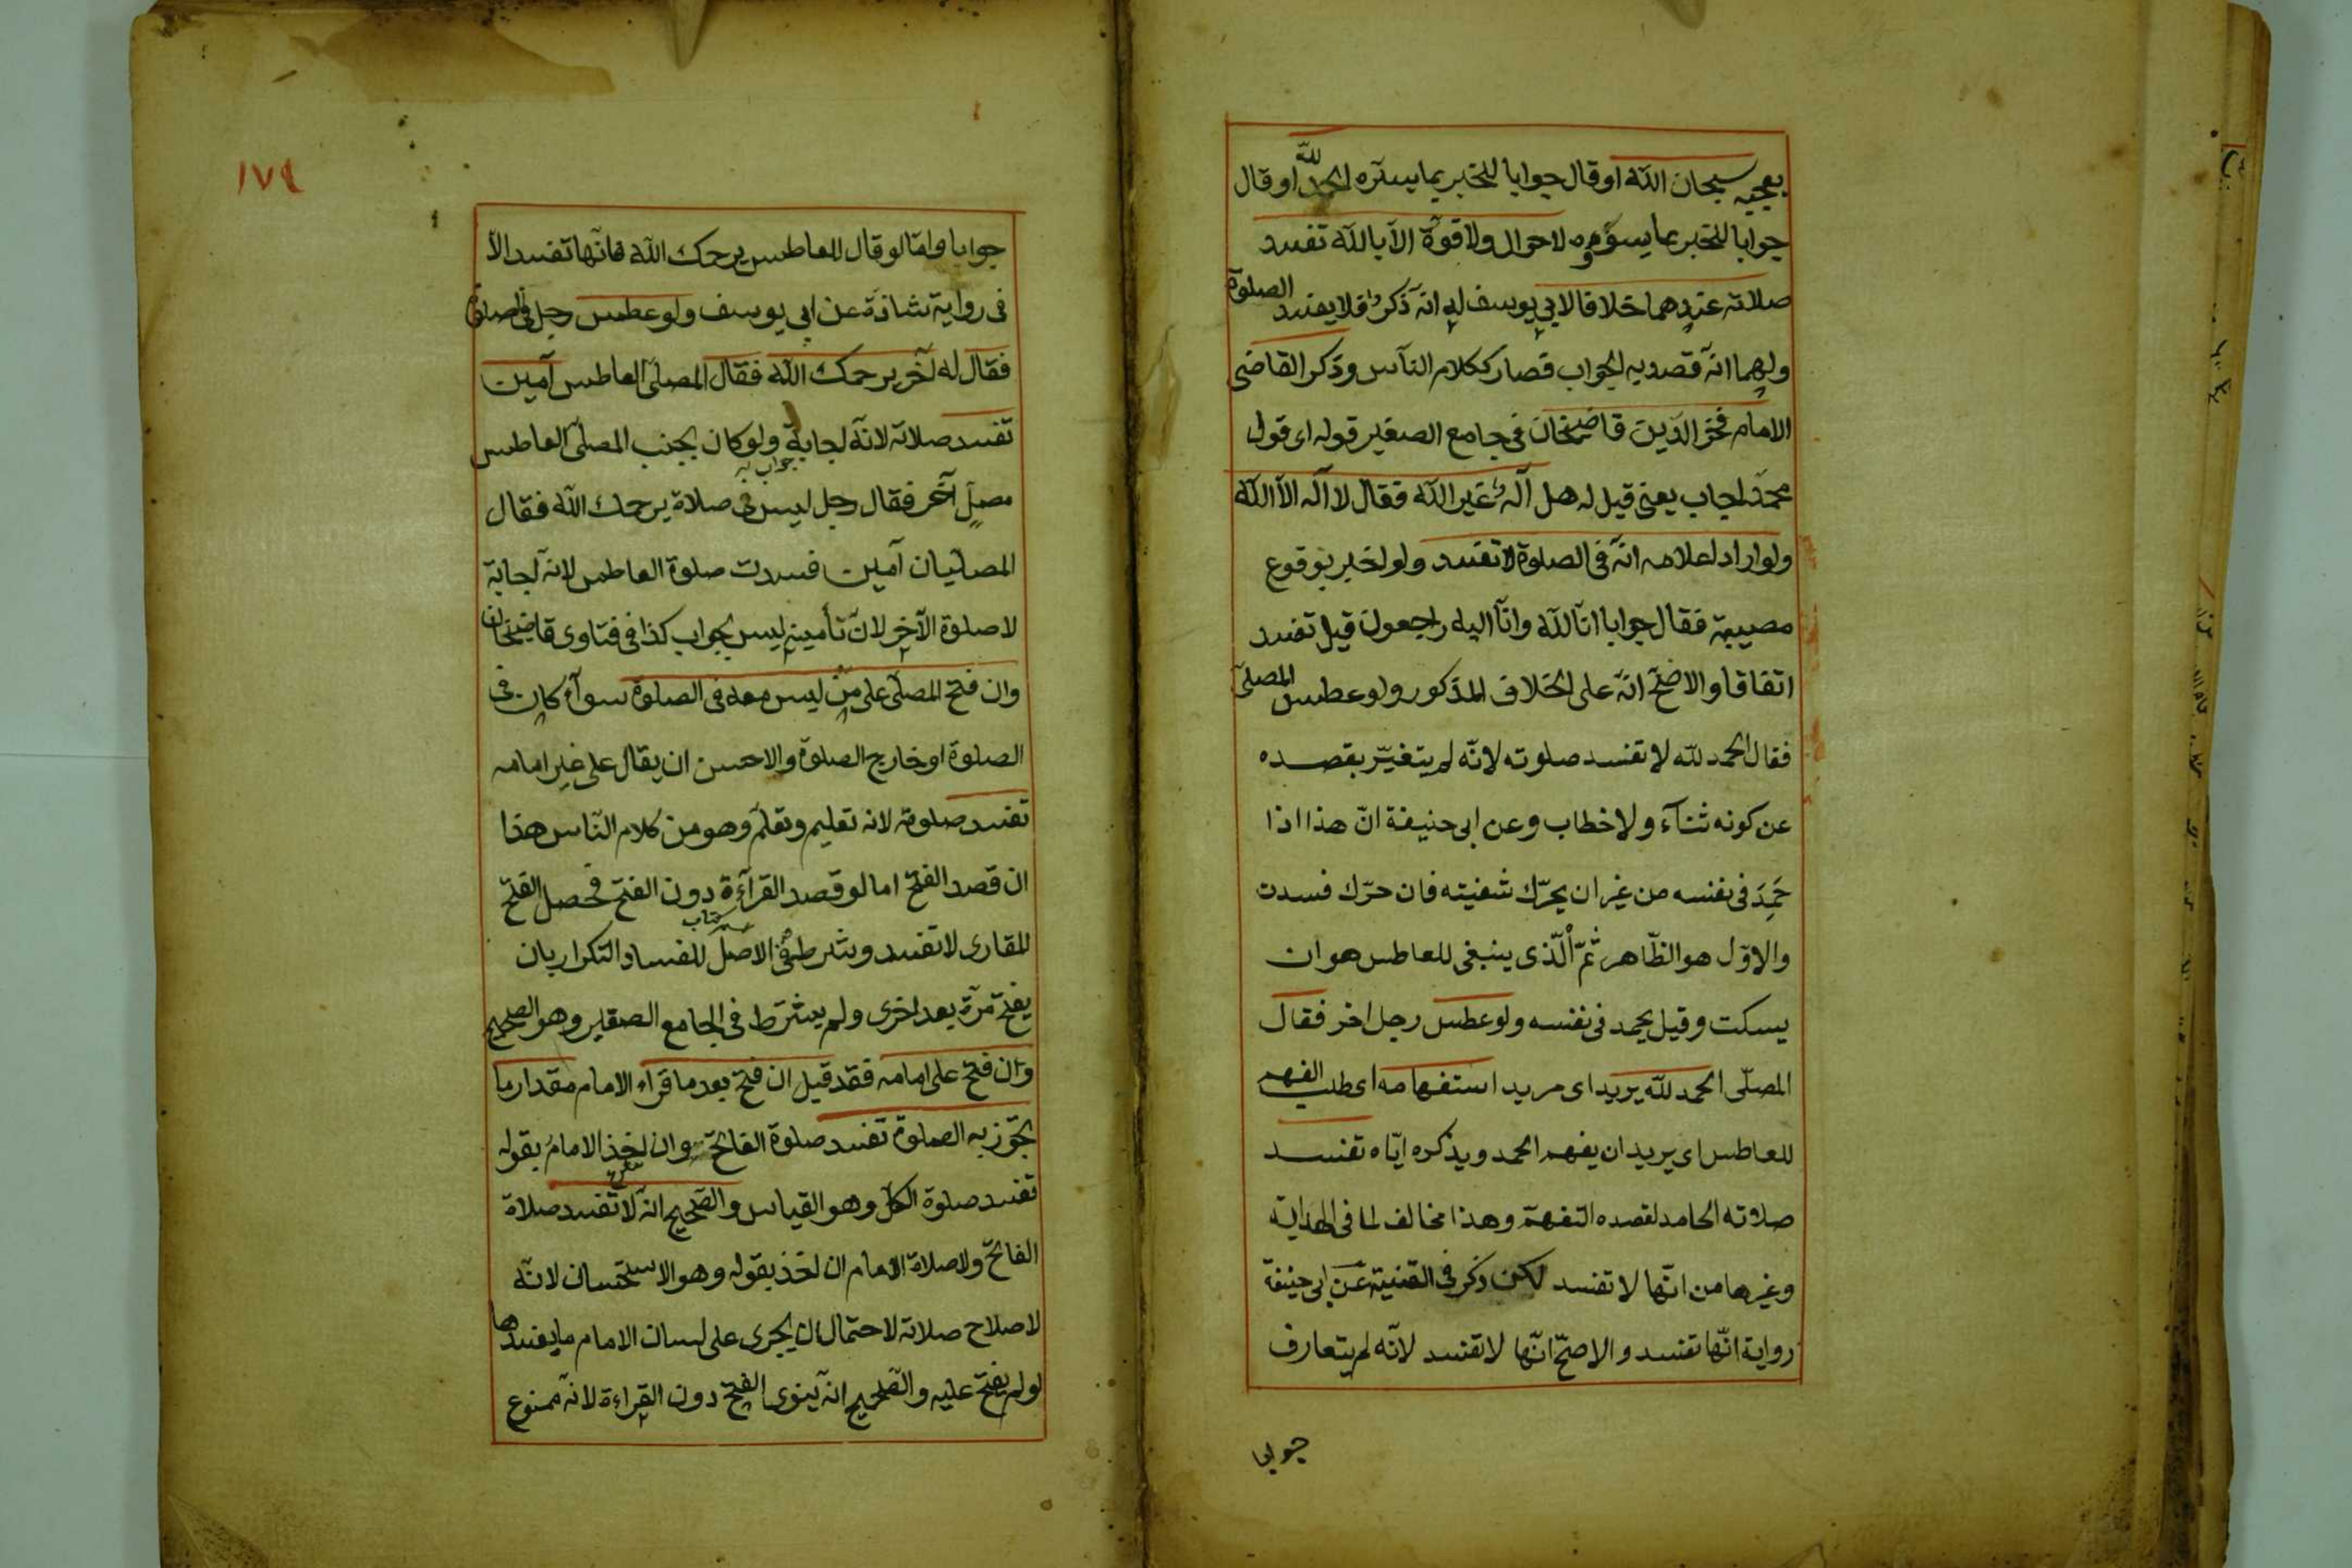 يعجبه سبحان الله او قال جوابا للخبر بما يسره الحمد لله او قال
جوابا للخبر بما يسوءه لا حول ولا قوة الا بالله تفسد
صلاته عندهما خلافا لابي يوسف له انه ذكر فلا يفسد الصلوة
ولهما انه قصد به الجواب فصار ككلام الناس وذكر القاضى
الامام فخر الدين قاضيخان فى جامع الصغير قوله اى قول
محمد اجاب يعنى قيل له هل اله غير الله فقال لا اله الا الله
ولو اراد اعلامه انه فى الصلوة لا تفسد ولو اخبر بوقوع
مصيبة فقال جوابا انا لله وانا اليه راجعون قيل تفسد
اتفاقا والاصح انه على الخلاف المذكور ولو عطس المصلى
فقال الحمد لله لا تفسد صلوته لانه لم يتغير بقصده
عن كونه ثناء ولا خطاب وعن ابى حنيفة ان هذا اذا
حمد فى نفسه من غير ان يحرك شفيته فان حرك فسدت
والاول هو الظاهر ثم الذى ينبغى للعاطس هو ان
يسكت وقيل يحمد فى نفسه ولو عطس رجل اخر فقال
المصلى الحمد لله يريد اى مريد استفهامه اى طلب الفهم
للعاطس اى يريد ان يفهم الحمد ويذكره اياه تفسد
صلاته الحامد لقصده التفهم وهذا مخالف لما فى الهداية
وغيرها من انها لا تفسد لكن ذكر فى القنية عن ابى حنيفة
رواية انها تفسد والاصح انها لا تفسد لانه لم يتعارف
جوابا
١٧٩
جوابا واما لو قال للعاطس يرحمك الله فانها تفسد الا
فى رواية شاذة عن ابى يوسف ولو عطس رجل فى الصلوة
فقال له آخر يرحمك الله فقال المصلى العاطس آمين
تفسد صلاته لانه اجابة ولو كان بجنب المصلى العاطس
جواب به
مصل آخر فقال رجل ليس فى صلاة يرحمك الله فقال
المصليان آمين فسدت صلوة العاطس لانه اجابة
لا صلوة الآخر لان تأمينه ليس بجواب كذا فى فتاوى قاضيخان
وان فتح المصلى على من ليس معه فى الصلوة سوآء كان فى
الصلوة او خارج الصلوة والاحسن ان يقال على غير امامه
تفسد صلوته لانه تعليم وتعلم وهو من كلام الناس هذا
ان قصد الفتح اما لو قصد القرآءة دون الفتح فحصل الفتح
للقارى لا تفسد وشرط فى الاصل للفساد التكرار بان
يفتح مرة بعد اخرى ولم يشترط فى الجامع الصغير وهو الصحيح
وان فتح على امامه فقد قيل ان فتح بعد ما قرأ الامام مقدار ما
يجوز به الصلوة تفسد صلوة الفاتح وان اخذ الامام بقوله
تفسد صلوة الكل وهو القياس والصحيح انه لا تفسد صلاة
الفاتح ولا صلاة الامام ان اخذ بقوله وهو الاستحسان لانه
لاصلاح صلاته لاحتمال ان يجرى على لسان الامام ما يفسدها
لو لم يفتح عليه والصحيح انه ينوى الفتح دون القراءة لانه ممنوع